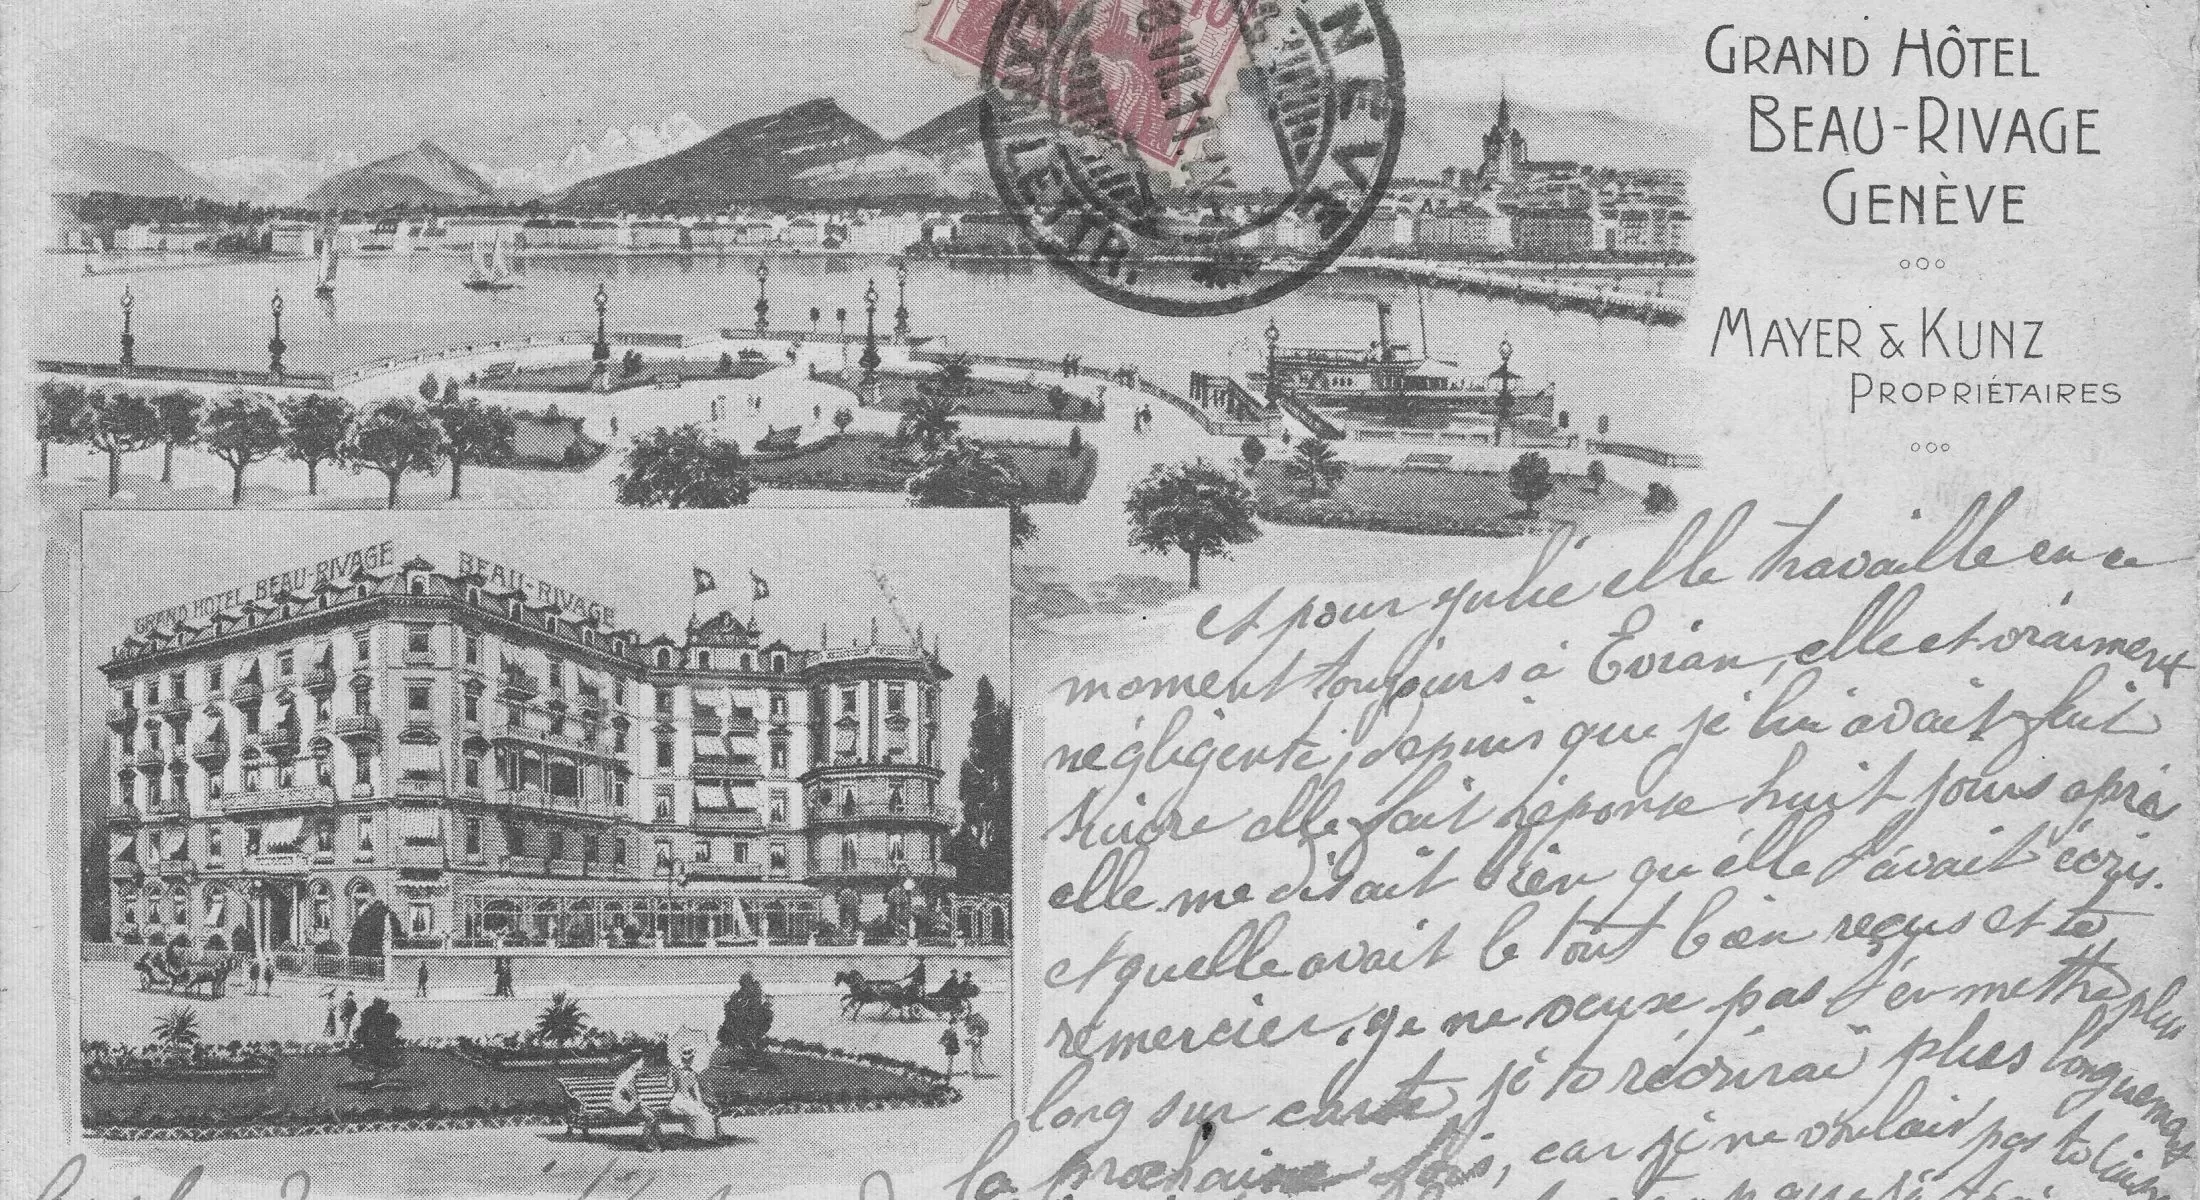 GRAND HÔTEL
BEAU-RIVAGE
GENÈVE
MAYER & KUNZ
PROPRIÉTAIRES
10
GENÈVE
EXP. LETTR.
GRAND HOTEL BEAU-RIVAGE BEAU-RIVAGE
et pour Julie elle travaille en ce
moment toujours à Evian, elle et vraiment
négligente, depuis que je lui avait fait
suivre elle fait réponse huit jours après
elle me disait bien qu'elle t'avait écris.
et quelle avait le tout bien reçus et te
remercier, je ne veux pas t'en mettre plus
long sur carte je te récrirai plus longuement
la prochaine fois, car je ne voulais pas te